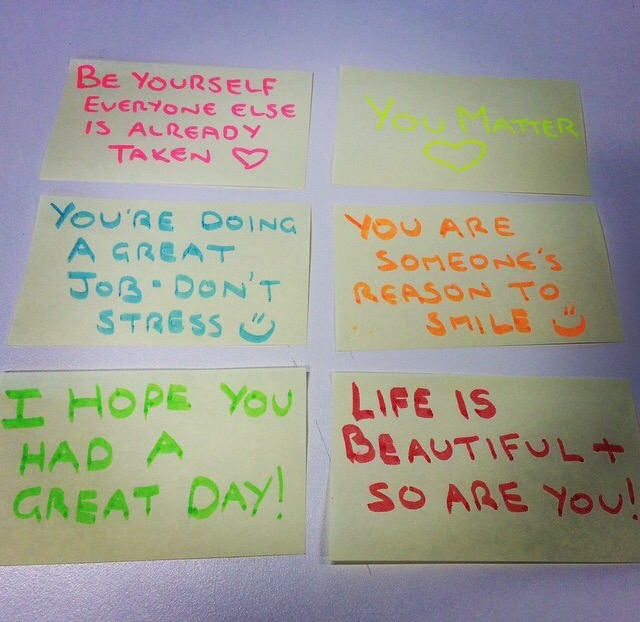 BE YOURSELF
EVERYONE ELSE
IS ALREADY
TAKEN ♡
YOU MATTER
♡
YOU'RE DOING
A GREAT
JOB · DON'T
STRESS
YOU ARE
SOMEONE'S
REASON TO
SMILE
I HOPE YOU
HAD A
GREAT DAY!
LIFE IS
BEAUTIFUL +
SO ARE YOU!